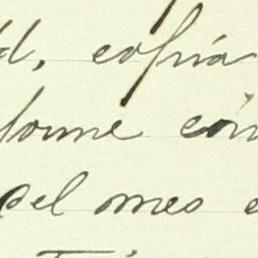 d, copia
forme con
del mes e